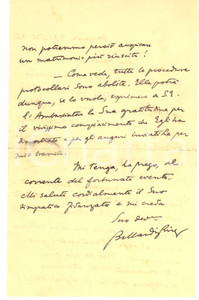 non potremmo perciò augurarci
un matrimonio più riuscito!
— Come vede, tutte le procedure
protocollari sono abolite. Ella potrà
dunque, se lo vuole, esprimere a S.E.
l'Ambasciatore la Sua gratitudine per
il vivissimo compiacimento che Egli ha
dimostrato e per gli auguri inviati
Mi tenga, La prego, al
corrente del fortunato evento.
Mi saluti cordialmente il Suo
simpatico fidanzato e mi creda
Suo dev.